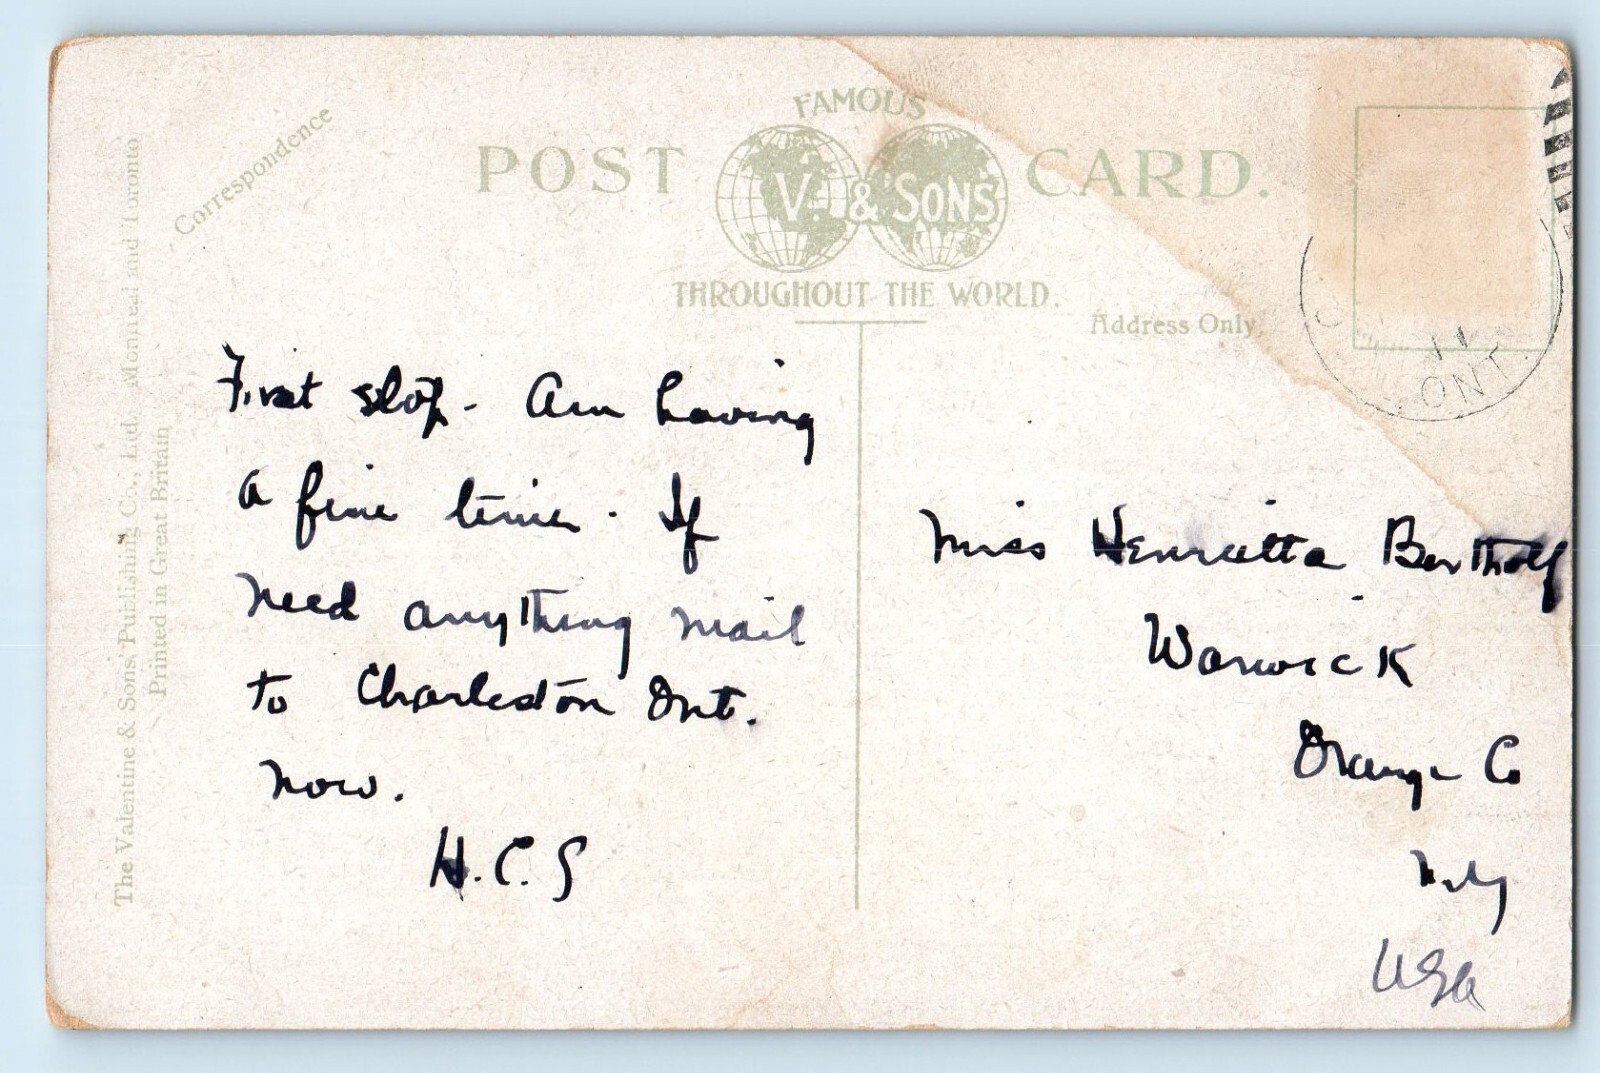 Correspondence
FAMOUS
POST CARD.
V. & SONS
THROUGHOUT THE WORLD.
Address Only
The Valentine & Sons' Publishing Co., Ltd. Montreal and Toronto
Printed in Great Britain
11
ONT
First stop. Am having
a fine time. If
need anything mail
to Charleston Ont.
now.
H.C.S
Miss Henrietta Bertholf
Warwick
Orange Co
N.Y
USA